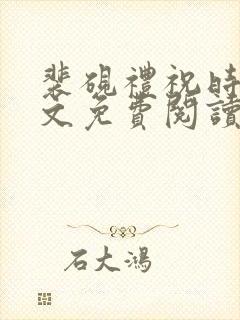 裴硯禮祝時
文免費閱讀
石大鴻